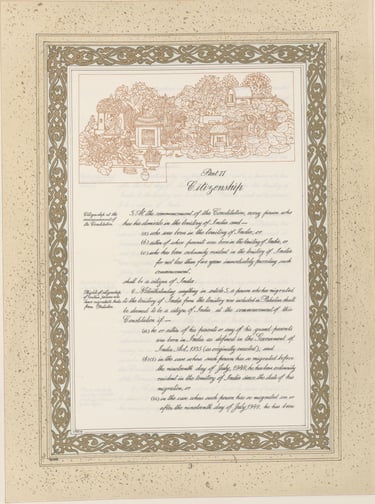 Part II
Citizenship
Citizenship at the
commencement of
the Constitution.
5. At the commencement of the Constitution, every person who
has his domicile in the territory of India and —
(a) who was born in the territory of India; or
(b) either of whose parents was born in the territory of India; or
(c) who has been ordinarily resident in the territory of India
for not less than five years immediately preceding such
commencement,
shall be a citizen of India.
Rights of citizenship
of certain persons who
have migrated to India
from Pakistan.
6. Notwithstanding anything in article 5, a person who has migrated
to the territory of India from the territory now included in Pakistan shall
be deemed to be a citizen of India at the commencement of this
Constitution if —
(a) he or either of his parents or any of his grand-parents
was born in India as defined in the Government of
India Act, 1935 (as originally enacted); and
(b)(i) in the case where such person has so migrated before
the nineteenth day of July, 1948, he has been ordinarily
resident in the territory of India since the date of his
migration, or
(ii) in the case where such person has so migrated on or
after the nineteenth day of July, 1948, he has been
3